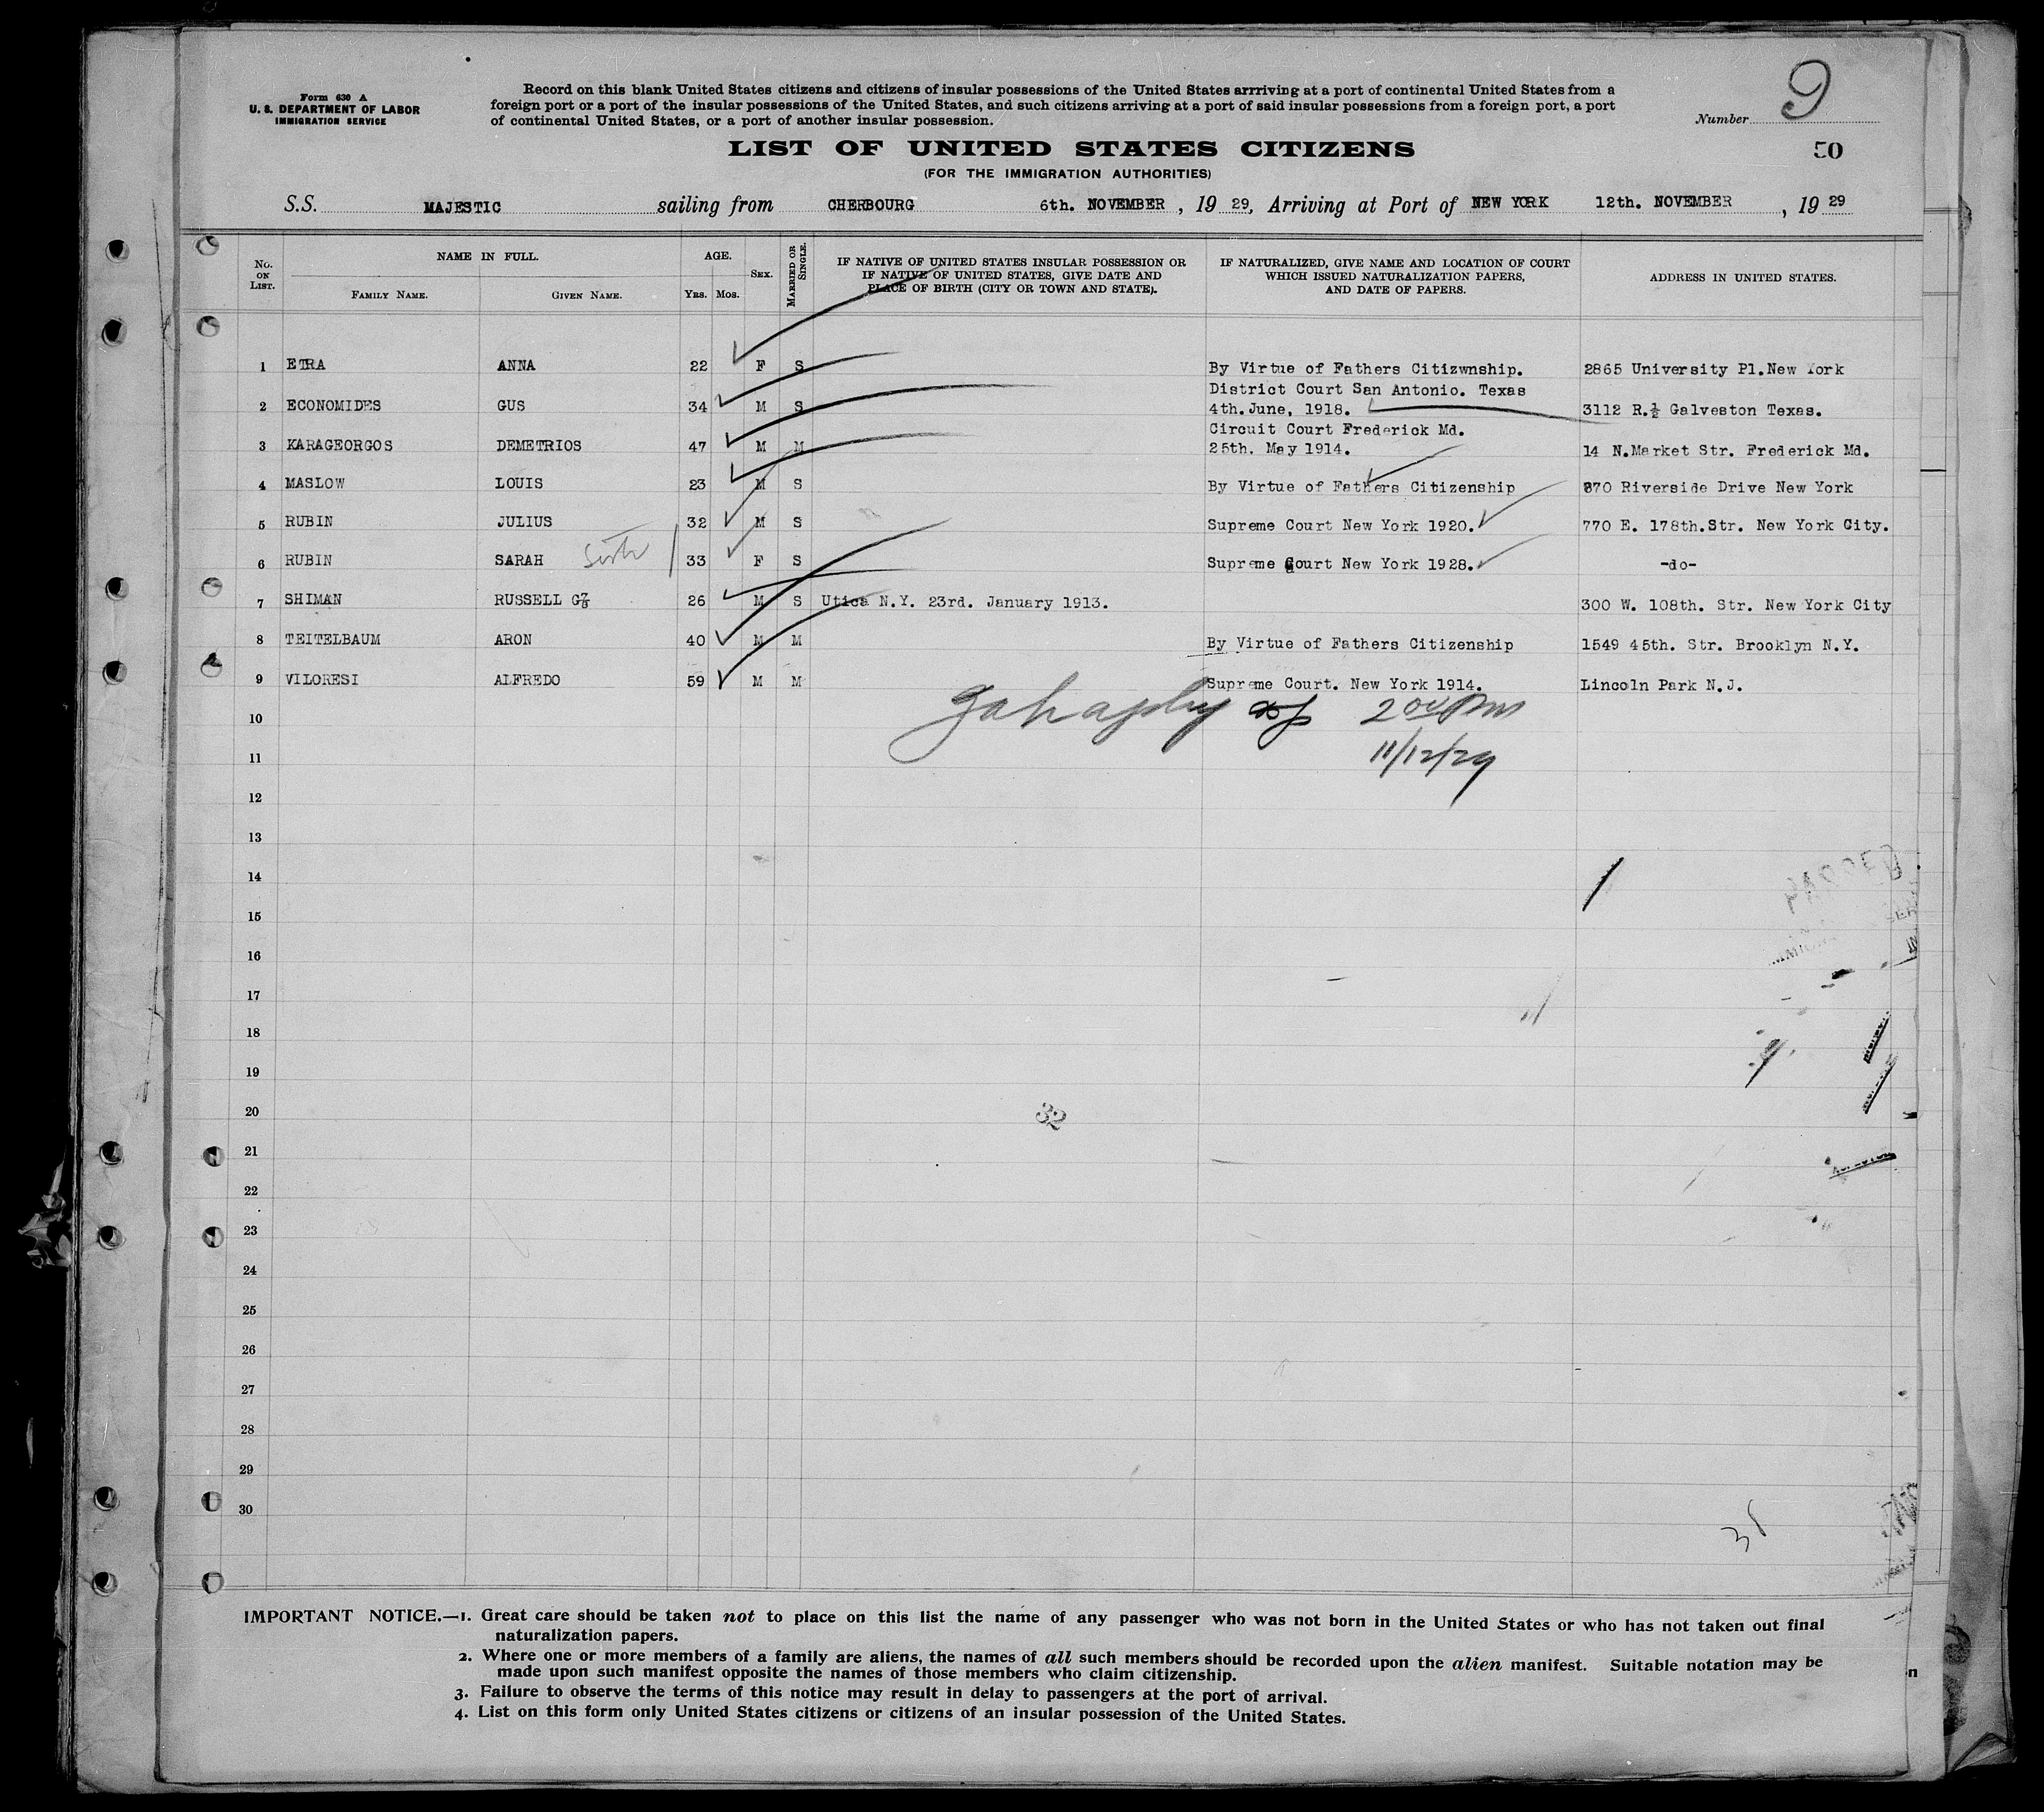 Form 630 A
U. S. DEPARTMENT OF LABOR
IMMIGRATION SERVICE
Record on this blank United States citizens and citizens of insular possessions of the United States arrriving at a port of continental United States from a
foreign port or a port of the insular possessions of the United States, and such citizens arriving at a port of said insular possessions from a foreign port, a port
of continental United States, or a port of another insular possession.
Number 9
LIST OF UNITED STATES CITIZENS
50
(FOR THE IMMIGRATION AUTHORITIES)
S.S. MAJESTIC sailing from CHERBOURG 6th. NOVEMBER, 19 29, Arriving at Port of NEW YORK 12th. NOVEMBER, 19 29
No. ON LIST. NAME IN FULL. FAMILY NAME. GIVEN NAME. AGE. YRS. MOS. SEX. MARRIED OR SINGLE. IF NATIVE OF UNITED STATES INSULAR POSSESSION OR IF NATIVE OF UNITED STATES, GIVE DATE AND PLACE OF BIRTH (CITY OR TOWN AND STATE). IF NATURALIZED, GIVE NAME AND LOCATION OF COURT WHICH ISSUED NATURALIZATION PAPERS, AND DATE OF PAPERS. ADDRESS IN UNITED STATES.
1 ETRA ANNA 22 F S By Virtue of Fathers Citizwnship. 2865 University Pl.New York
2 ECONOMIDES GUS 34 M S District Court San Antonio. Texas 4th.June, 1918. 3112 R.½ Galveston Texas.
3 KARAGEORGOS DEMETRIOS 47 M M Circuit Court Frederick Md. 25th. May 1914. 14 N.Market Str. Frederick Md.
4 MASLOW LOUIS 23 M S By Virtue of Fathers Citizenship 870 Riverside Drive New York
5 RUBIN JULIUS 32 M S Supreme Court New York 1920. 770 E. 178th.Str. New York City.
6 RUBIN SARAH 33 F S Supreme Court New York 1928. -do-
7 SHIMAN RUSSELL G 26 M S Utica N.Y. 23rd. January 1913. 300 W. 108th. Str. New York City
8 TEITELBAUM ARON 40 M M By Virtue of Fathers Citizenship 1549 45th. Str. Brooklyn N.Y.
9 VILORESI ALFREDO 59 M M Supreme Court. New York 1914. Lincoln Park N.J.
10
2 00 Pm
11
11/12/29
12
13
14
15
16
17
18
19
20
32
21
22
23
24
25
26
27
28
29
30
IMPORTANT NOTICE.—1. Great care should be taken not to place on this list the name of any passenger who was not born in the United States or who has not taken out final
naturalization papers.
2. Where one or more members of a family are aliens, the names of all such members should be recorded upon the alien manifest. Suitable notation may be
made upon such manifest opposite the names of those members who claim citizenship.
3. Failure to observe the terms of this notice may result in delay to passengers at the port of arrival.
4. List on this form only United States citizens or citizens of an insular possession of the United States.